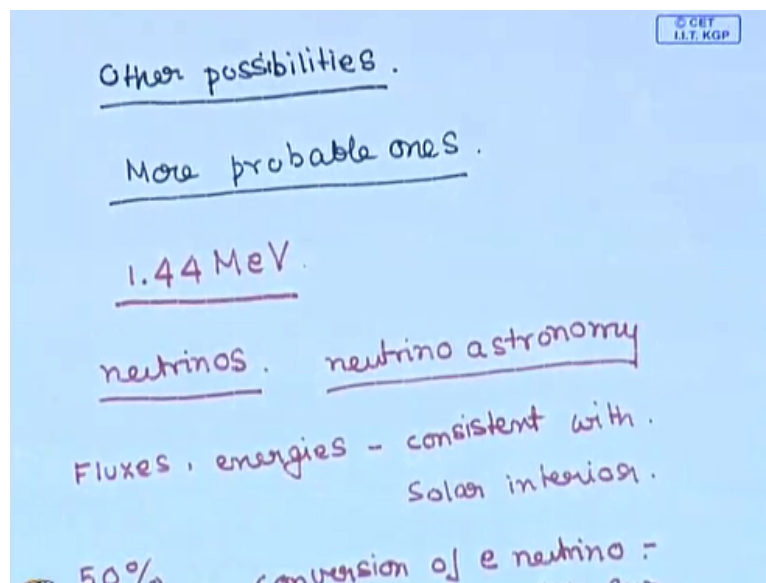 © CET
I.I.T. KGP
Other possibilities.
More probable ones.
1.44 MeV.
neutrinos. neutrino astronomy
Fluxes, energies - consistent with.
Solar interior.
50% conversion of e neutrino :-